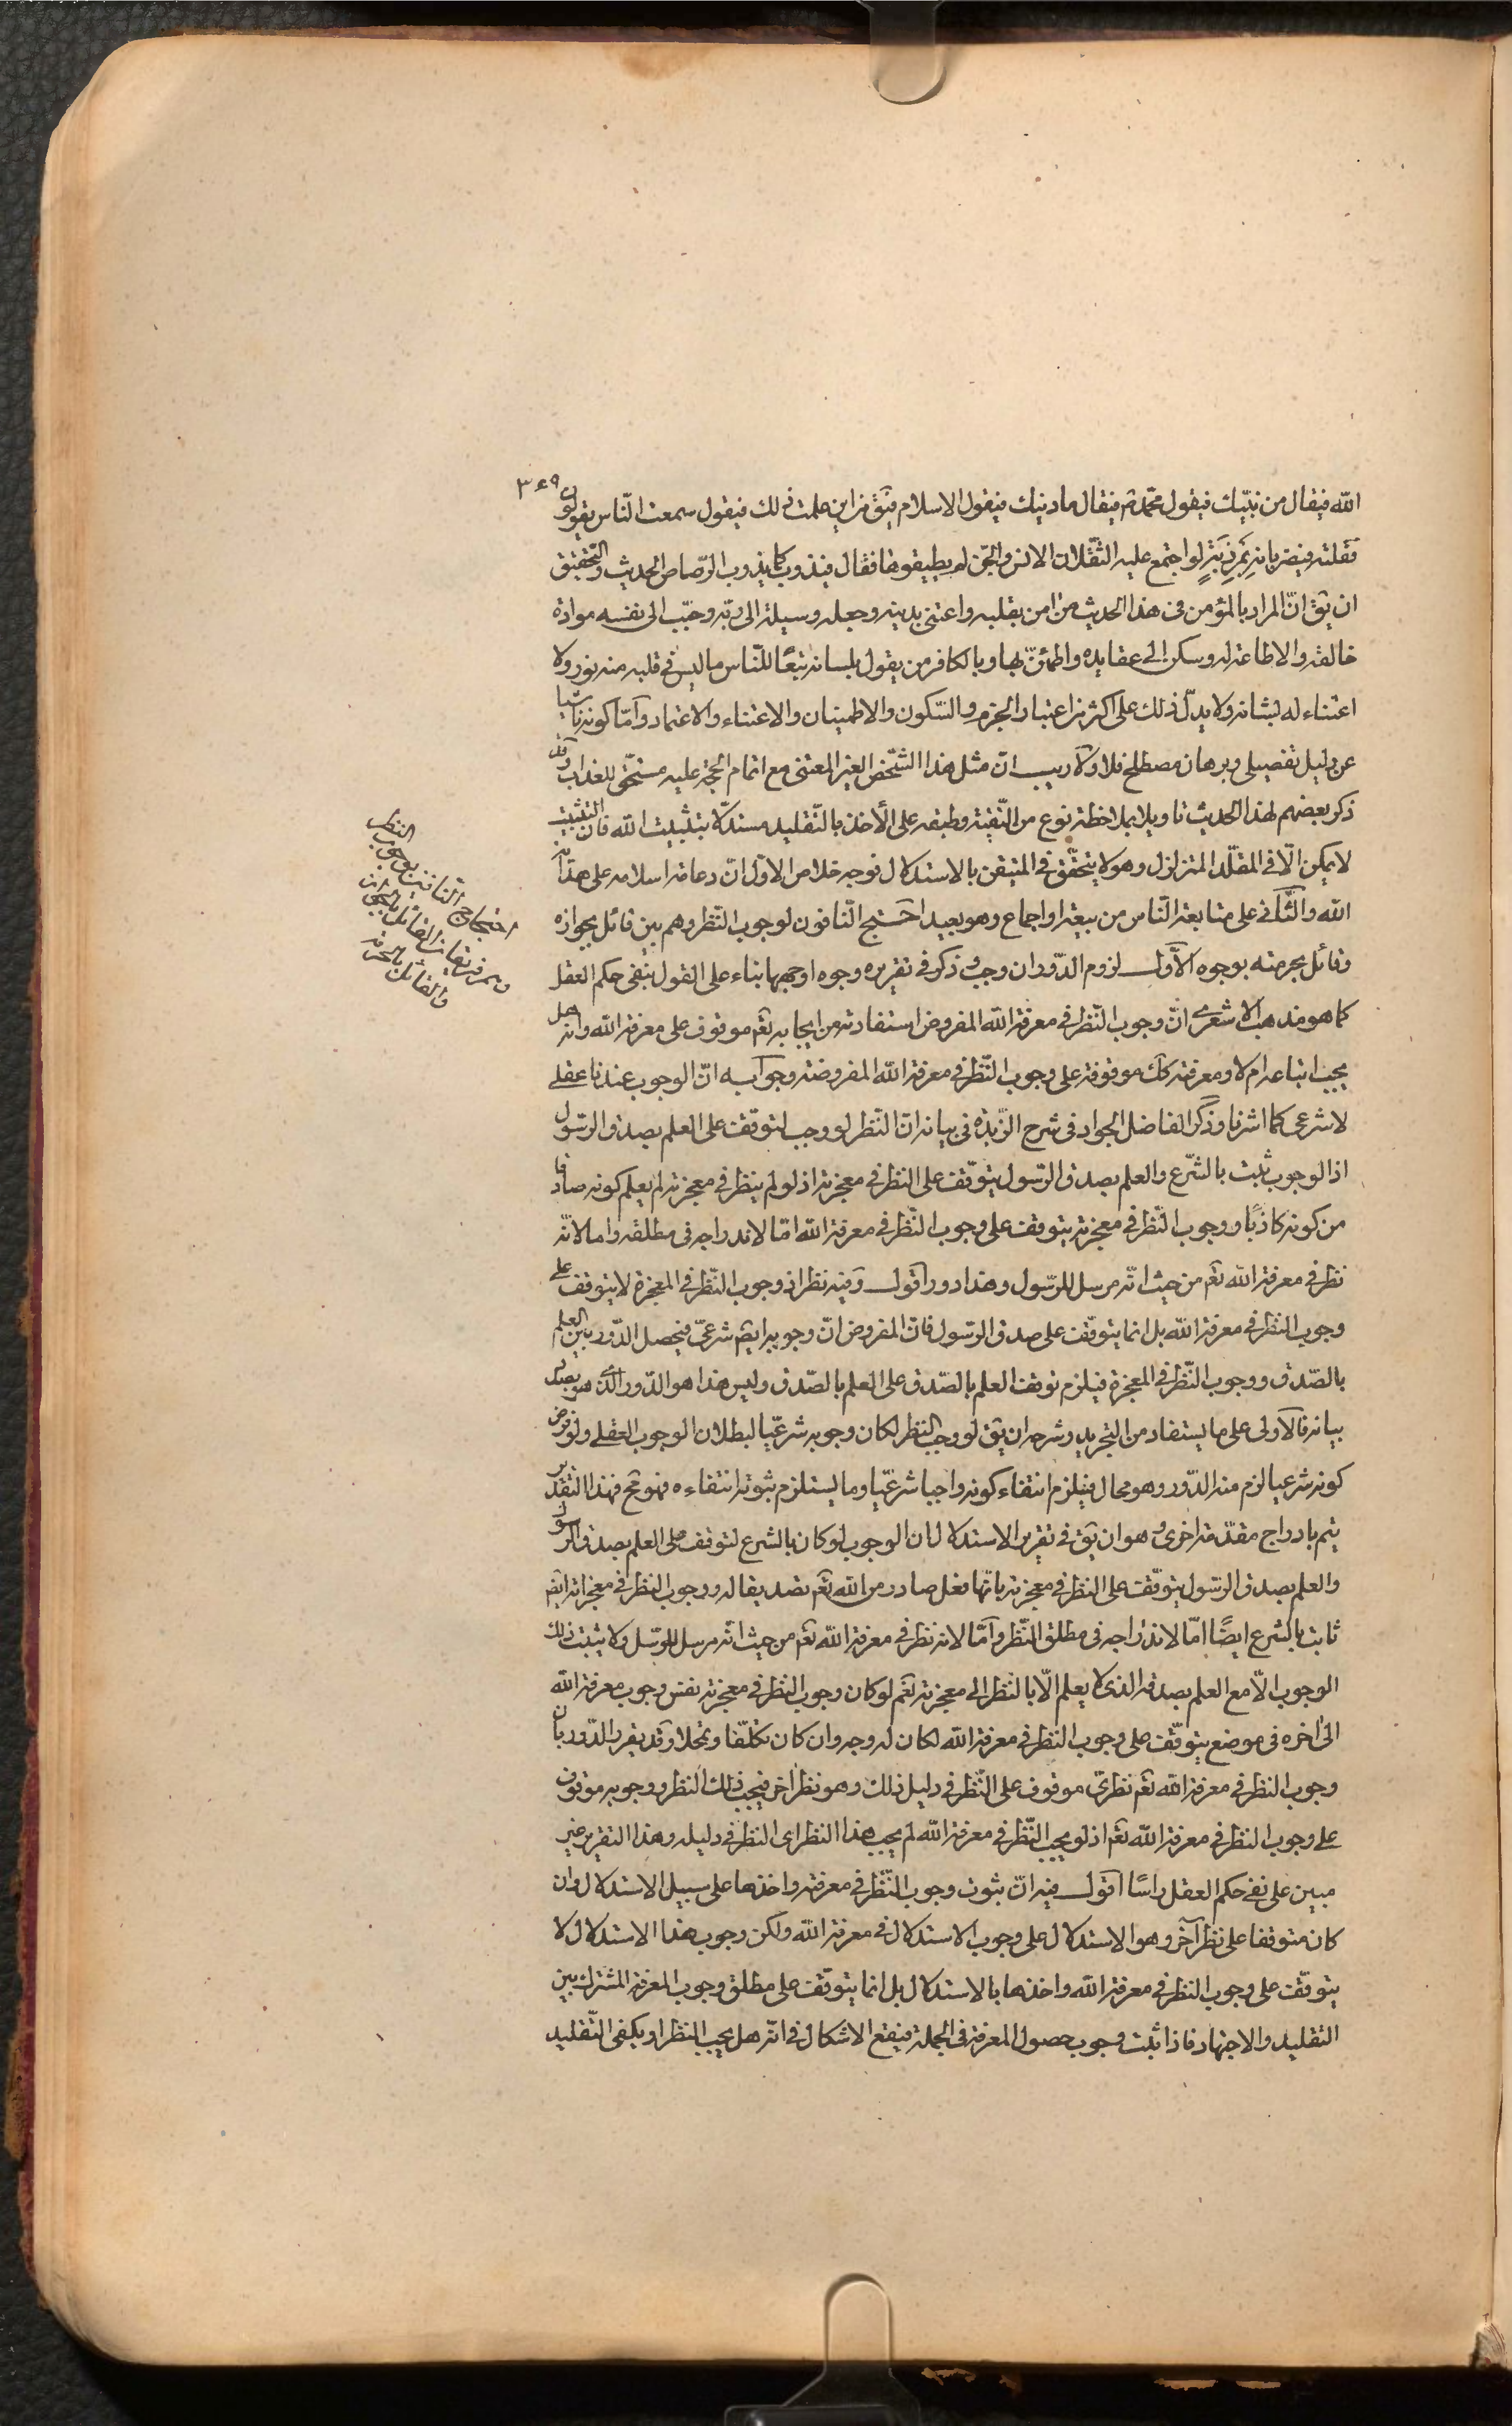 ٣٤٩
الله فيقال من نبيّك فيقول محمّد ص فيقال ما دينك فيقول الاسلام فيق من اين علمت ذلك فيقول سمعت النّاس يقولون
فقلته فيضربانه بمرزبة لو اجتمع عليه الثّقلان الانس والجّن لم يطيقوها فقال فيذوب كما يذوب الرّصاص الحديث والتحقيق
ان يق انّ المراد بالمؤمن في هذا الحديث من امن بقلبه واعتنى بدينه وجعله وسيلة الى ربّه وحبّب الى نفسه موادة
خالقه والاطاعة له وسكن الى عقايده واطمئنّ بها وبالكافر من يقول بلسانه تبعًا للنّاس ما ليس في قلبه منه نور ولا
اعتناء له بشانه ولا يدلّ ذلك على اكثر من اعتبار الجزم والسّكون والاطمينان والاعتناء والاعتماد وامّا كونه ناشيا
عن دليل تفصيلى وبرهان مصطلح فلا ولا ريب انّ مثل هذا الشّخص الغير المعتنى مع اتمام الحجّة عليه مستحق للعذاب وقد
ذكر بعضهم لهذا الحديث تاويلا بملاحظة نوع من التّقيّة وطبقه على الأخذ بالتّقليد مستدلّا بتثبيت الله فان التثبيت
لا يمكن الّا في المقلّد المتزلزل وهو لا يتحقّق في المتيقن بالاستدلال فوجه خلاص الاوّل انّ دعامة اسلامه على هداية
الله والثّانى على متابعة النّاس من بيعة او اجماع وهو بعيد احتج النّافون لوجوب النّظر وهم بين قائل بجوازه
وقائل بحرمته بوجوه الاوّل لزوم الدّور ان وجب وذكر في تقريره وجوه اوجهها بناء على القول بنفى حكم العقل
كما هو مذهب الاشعرى انّ وجوب النّظر في معرفة الله المفروض استفادته من ايجابه تعم موقوف على معرفة الله وانه هل
يجب اتباعه ام لا ومعرفته كك موقوفة على وجوب النّظر في معرفة الله المفروضة وجوابه انّ الوجوب عندنا عقلى
لا شرعى كما اشرنا وذكر الفاضل الجواد في شرح الزّبدة في بيانه انّ النّظر لو وجب لتوقّف على العلم بصدق الرّسول
اذ الوجوب يثبت بالشّرع والعلم بصدق الرّسول يتوقّف على النظر في معجزته اذ لو لم ينظر في معجزته لم يعلم كونه صادقا
من كونه كاذبًا ووجوب النّظر في معجزته يتوقف على وجوب النّظر في معرفة الله امّا لاندراجه في مطلقه واما لانّه
نظر في معرفة الله تعم من حيث انّه مرسل للرّسول وهذا دور اقول وفيه نظر اذ وجوب النّظر في المعجزة لا يتوقف على
وجوب النظر في معرفة الله بل انما يتوقّف على صدق الرّسول فان المفروض انّ وجوبه ايضم شرعىّ فيحصل الدّور بين العلم
بالصّدق ووجوب النّظر في المعجزة فيلزم توقف العلم بالصّدق على العلم بالصّدق وليس هذا هو الدّور الّذى هو بصدد
بيانه فالاولى على ما يستفاد من التجريد وشرحه ان يق لو وجب النظر لكان وجوبه شرعيّا لبطلان الوجوب العقلى ولو فرض
كونه شرعيا لزم منه الدّور وهو محال فيلزم انتفاء كونه واجبا شرعيّا وما يستلزم ثبوته انتفاءه فهو مح فهذا التقدير
يتم بادراج مقدّمة اخرى وهو ان يق في تقرير الاستدلال ان الوجوب لو كان بالشرع لتوقف على العلم بصدق الرّسول
والعلم بصدق الرّسول يتوقّف على النظر في معجزته بانّها فعل صادر من الله تعم تصديقا له ووجوب النظر في معجزاته ايضم
ثابت بالشرع ايضًا امّا لاندراجه في مطلق النّظر وامّا لانه نظر في معرفة الله تعم من حيث انّه مرسل للرّسل ولا يثبت ذلك
الوجوب الّا مع العلم بصدقه الذى لا يعلم الّا بالنّظر الى معجزته نعم لو كان وجوب النظر في معجزته نفس وجوب معرفة الله
الى اخره في موضع يتوقّف على وجوب النظر في معرفة الله لكان له وجه وان كان تكلّفا وتمحّلا وقد يقرر الدّور بان
وجوب النظر في معرفة الله تعم نظرىّ موقوف على النّظر في دليل ذلك وهو نظر اخر فيجب ذلك النظر ووجوبه موقوف
على وجوب النظر في معرفة الله تعم اذ لو لم يجب النّظر في معرفة الله لم يجب هذا النظر اى النظر في دليله وهذا التقرير غير
مبين على نفى حكم العقل راسًا اقول فيه انّ ثبوت وجوب النّظر في معرفته واخذها على سبيل الاستدلال وان
كان متوقفا على نظر آخر وهو الاستدلال على وجوب الاستدلال في معرفة الله ولكن وجوب هذا الاستدلال لا
يتوقّف على وجوب النظر في معرفة الله واخذها بالاستدلال بل انما يتوقّف على مطلق وجوب المعرفة المشترك بين
التقليد والاجتهاد فاذا ثبت وجوب حصول المعرفة في الجملة فيقع الاشكال في انّه هل يجب النظر او يكفى التّقليد
احتجاج النافين لوجوب النظر
وهم فريقان القائل بالجواز
والقائل بالحرمة